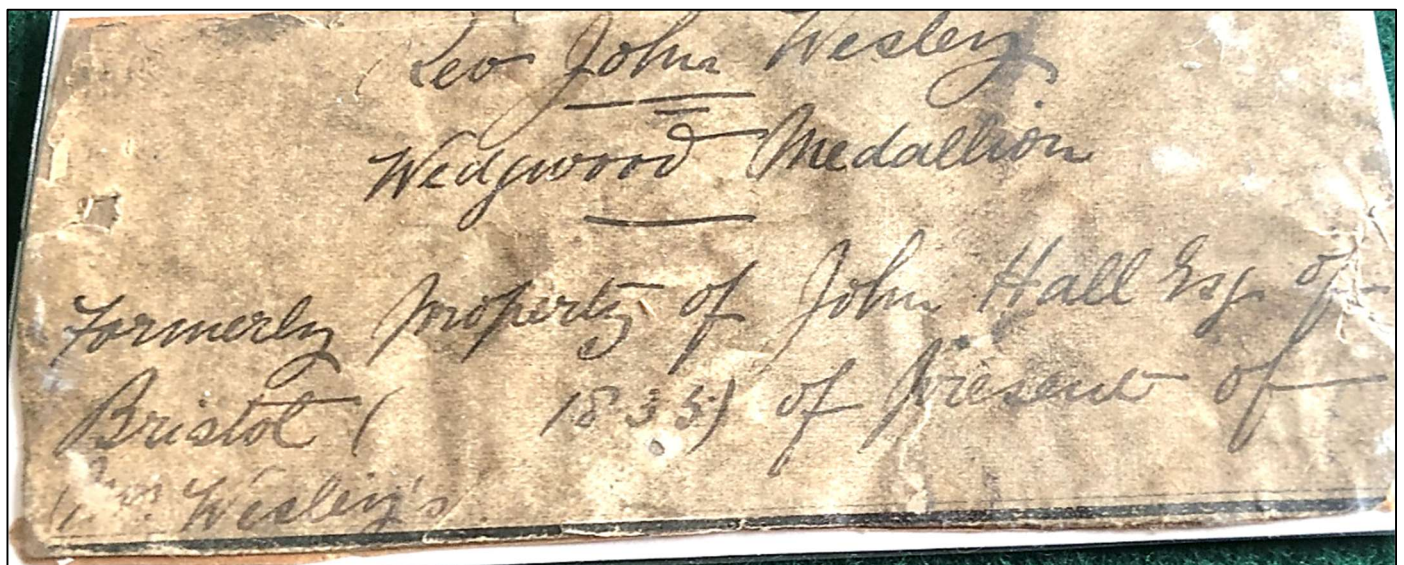 Rev John Wesley
Wedgwood Medallion
Formerly Property of John Hall Esq. of
Bristol ( 1835) of Present of
Wesley's